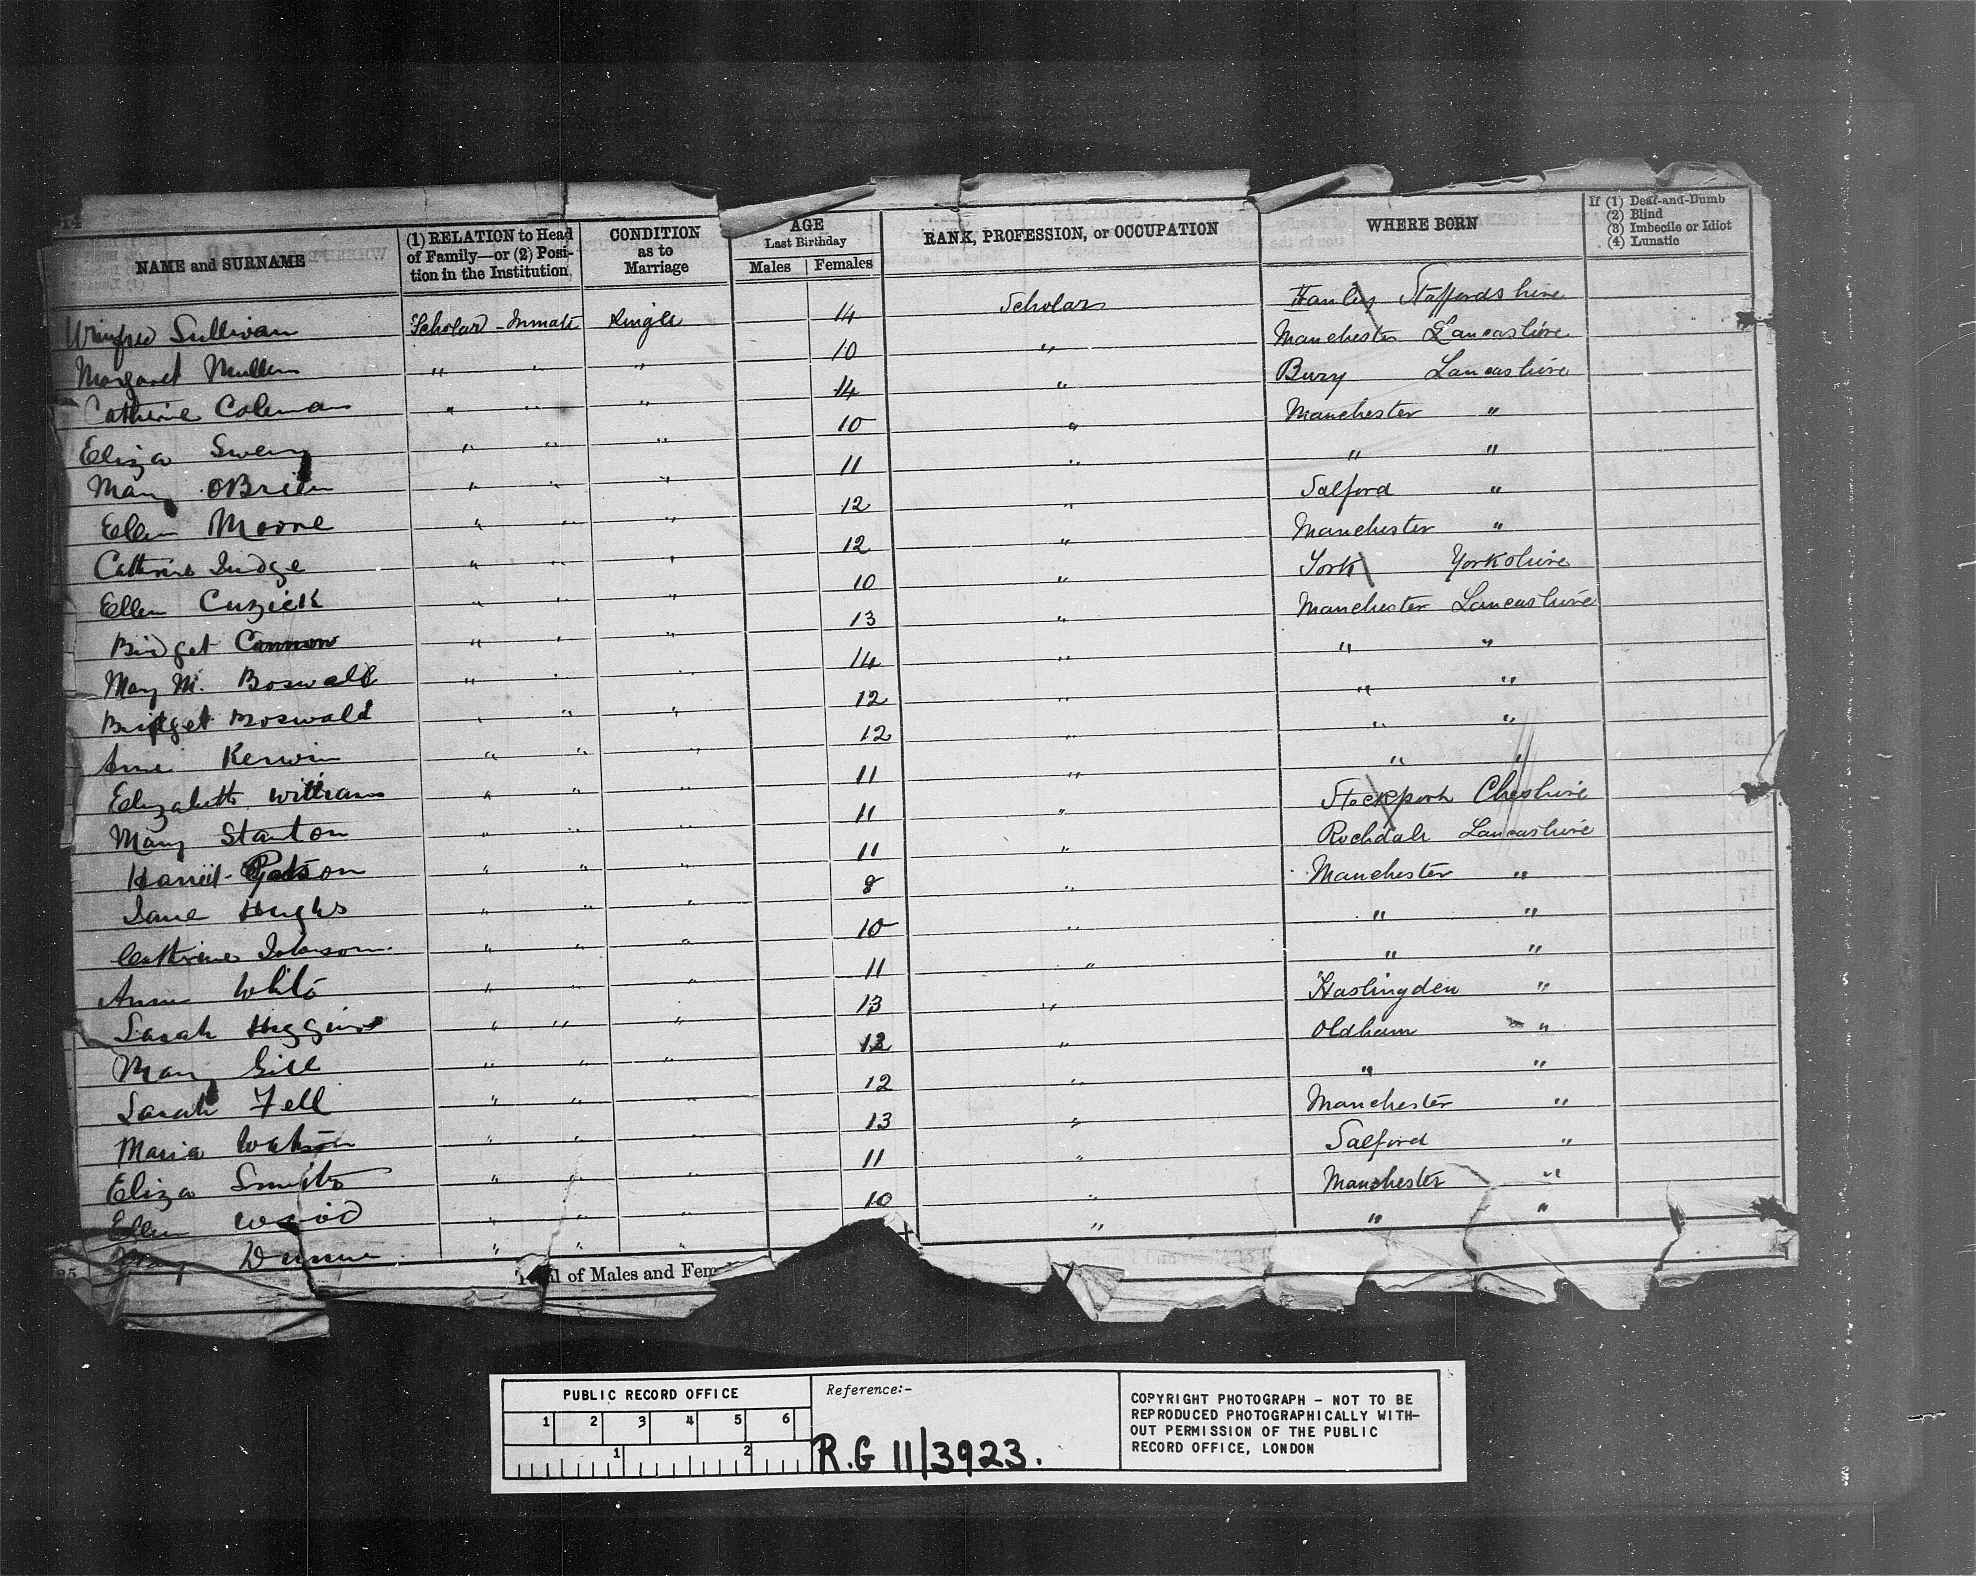 14
NAME and SURNAME (1) RELATION to Head of Family—or (2) Position in the Institution CONDITION as to Marriage AGE Last Birthday Males Females RANK, PROFESSION, or OCCUPATION WHERE BORN If (1) Deaf-and-Dumb (2) Blind (3) Imbecile or Idiot (4) Lunatic
Sullivan Scholar - Inmate Single 14 Scholar Hanley Staffordshire
Margaret Mullen " " " 10 " Manchester Lancashire
Catherine Coleman " " " 14 " Bury Lancashire
Eliza " " " 10 " Manchester "
Mary OBrien " " " 11 " " "
Ellen Moore " " " 12 " Salford "
Catherine Judge " " " 12 " Manchester "
Ellen Cuzick " " " 10 " York Yorkshire
Bridget Cannon " " " 13 " Manchester Lancashire
Mary M. Boswald " " " 14 " " "
Bridget Boswald " " " 12 " " "
Kerwin " " " 12 " " "
Elizabeth Williams " " " 11 " " "
Mary Stanton " " " 11 " Stockport Cheshire
Harriet " " " 11 " Rochdale Lancashire
Jane Hughs " " " 8 " Manchester "
Catherine Johnson " " " 10 " " "
Annie White " " " 11 " " "
Sarah Higgins " " " 13 " Haslingden "
Mary Gill " " " 12 " Oldham "
Sarah Fell " " " 12 " " "
Maria Watson " " " 13 " Manchester "
Eliza Smith " " " 11 " Salford "
Ellen " " " 10 " Manchester "
25 Mary Dunne " " " " " "
Total of Males and Fem
PUBLIC RECORD OFFICE
1 2 3 4 5 6
1 2
Reference:-
R.G 11/3923.
COPYRIGHT PHOTOGRAPH - NOT TO BE
REPRODUCED PHOTOGRAPHICALLY WITH-
OUT PERMISSION OF THE PUBLIC
RECORD OFFICE, LONDON